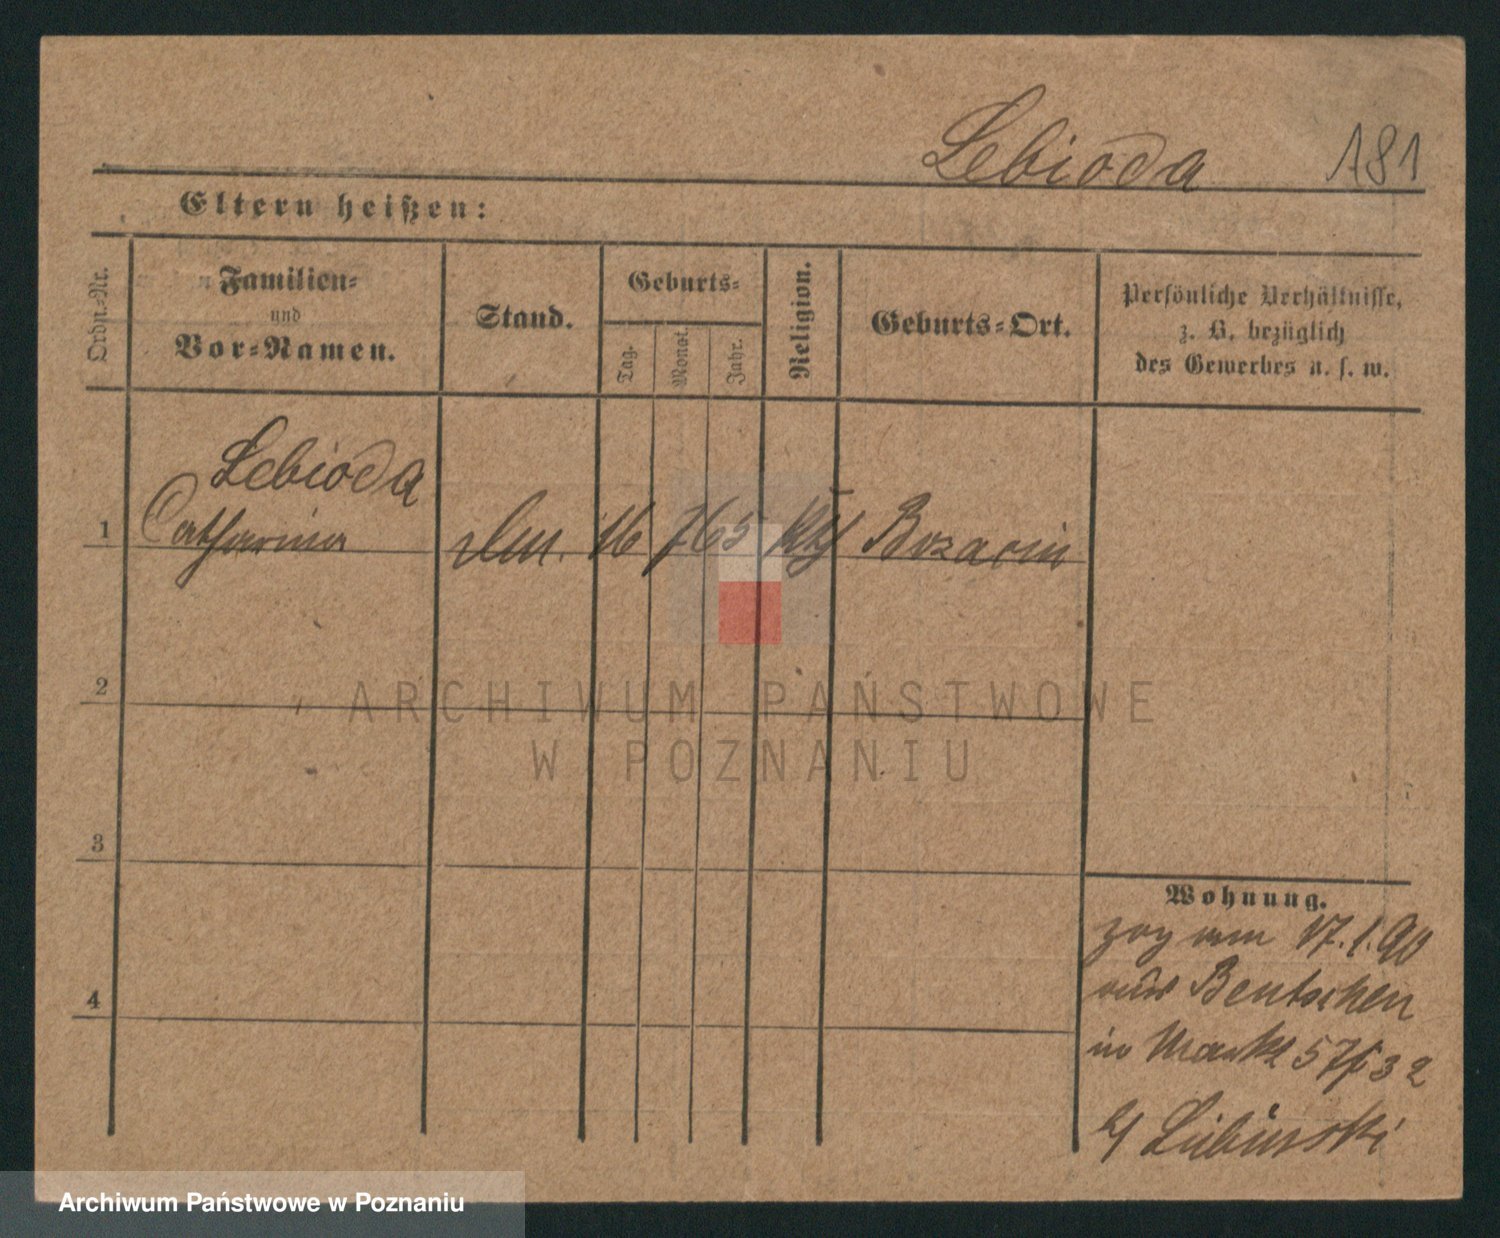 Lebioda 181
Eltern heißen:
Ordn.-Nr.
Familien-
und
Vor-Namen.
Stand.
Geburts-
Tag.
Monat.
Jahr.
Religion.
Geburts-Ort.
Persönliche Verhältnisse,
z. B. bezüglich
des Gewerbes u. s. w.
Lebioda
1 Catharina 16 7 65 kth
2
3
4
ARCHIWUM PAŃSTWOWE
W POZNANIU
Wohnung.
zog am 17.1.90
aus Bentschen
in Markt 57/32
b/
Archiwum Państwowe w Poznaniu